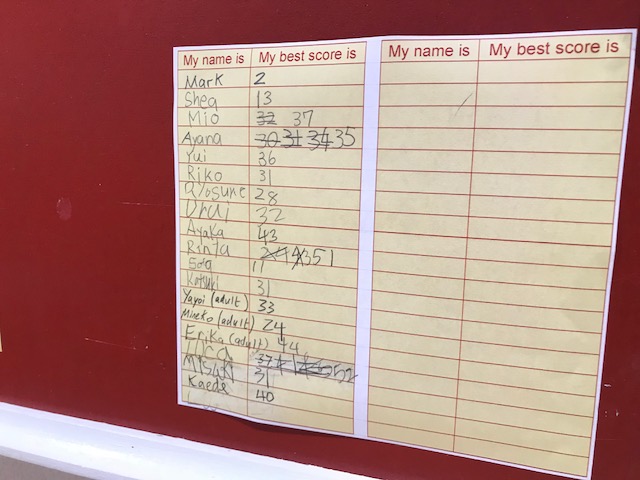 My name is My best score is
Mark 2
Shea 13
Mio 32 37
Ayana 30 31 34 35
Yui 36
Riko 31
28
32
Ayaka 43
Rinta 51
Sota 11
31
Yayoi (adult) 33
Mineko (adult) 24
Erika (adult) 44
37 52
Misaki 31
Kaede 40
My name is My best score is